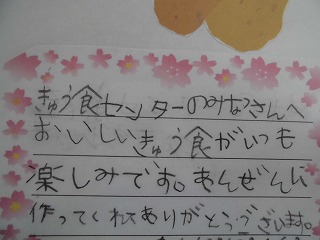 きゅう食センターのみなさんへ
おいしいきゅう食がいつも
楽しみです。あんぜんに
作ってくれてありがとうございます。